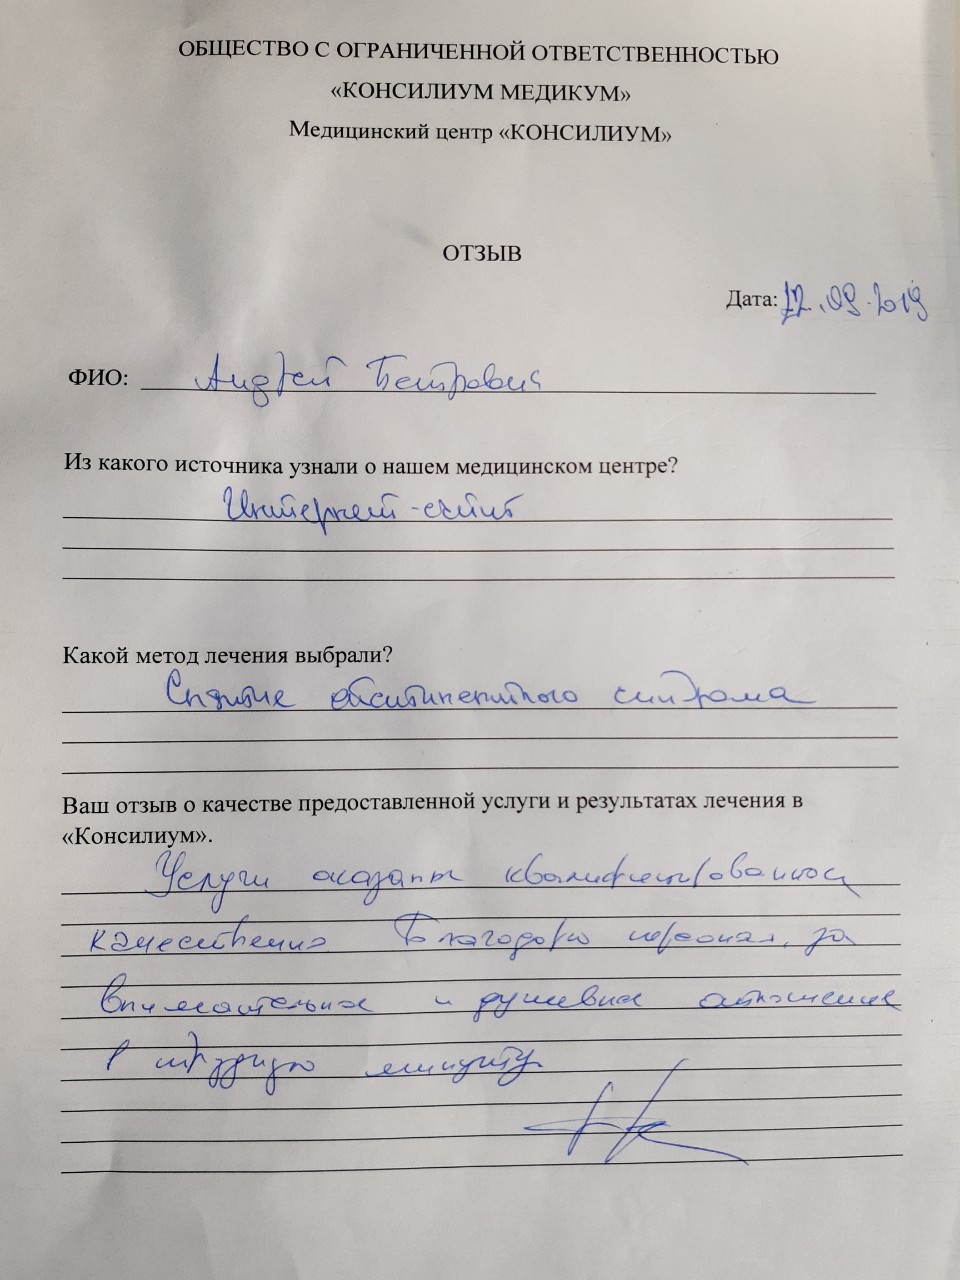 ОБЩЕСТВО С ОГРАНИЧЕННОЙ ОТВЕТСТВЕННОСТЬЮ
«КОНСИЛИУМ МЕДИКУМ»
Медицинский центр «КОНСИЛИУМ»
ОТЗЫВ
Дата: .09.2019
ФИО: Андрей Петрович
Из какого источника узнали о нашем медицинском центре?
Интернет-сайт
Какой метод лечения выбрали?
Снятие абстинентного синдрома
Ваш отзыв о качестве предоставленной услуги и результатах лечения в
«Консилиум».
Услуги оказаны квалифицированно,
качественно. Благодарю персонал, за
внимательное и душевное отношение
в трудную минуту